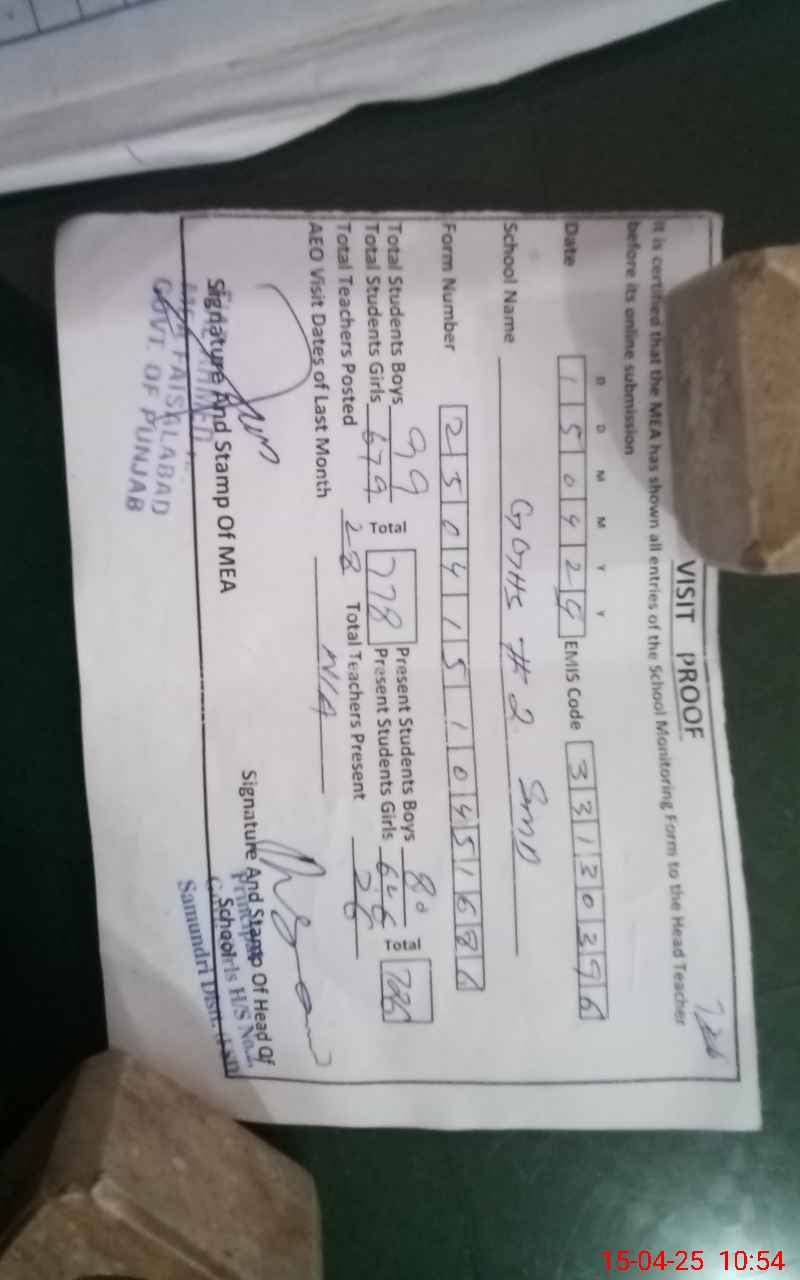 VISIT PROOF
It is certified that the MEA has shown all entries of the School Monitoring Form to the Head Teacher
before its online submission
D D M M Y Y
Date 1 5 0 4 2 5 EMIS Code 3 3 1 3 0 3 9 6
School Name GGHS # 2 SMD
Form Number 2 5 0 4 1 5 1 0 4 5 1 6 8 6
Total Students Boys 99 Total 778 Present Students Boys 80 Total 726
Total Students Girls 679 Present Students Girls 646
Total Teachers Posted 28 Total Teachers Present 26
AEO Visit Dates of Last Month N/A
Signature And Stamp Of MEA
FAISALABAD
GOVT. OF PUNJAB
Signature And Stamp Of Head Of
School
Principal
Girls H/S No.2
Samundri Distt.
15-04-25 10:54